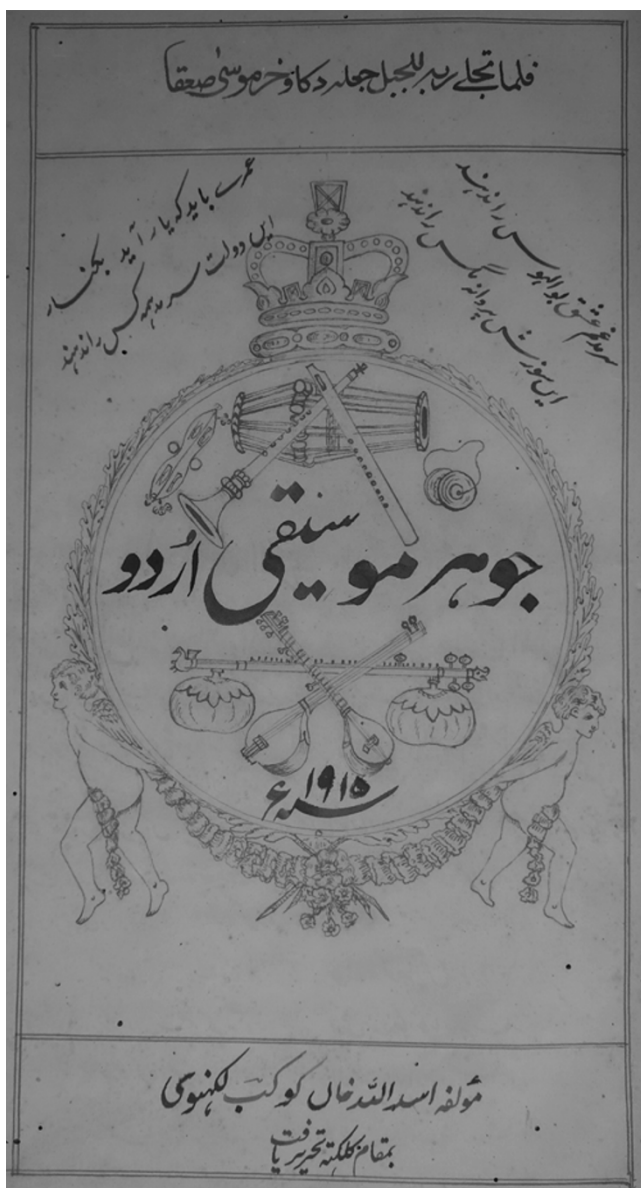 فلما تجلے ربہ للجبل جعلہ دکا وخر موسیٰ صعقا
سرمد غم عشق بوالہوس را ندہند
ایں سوزش پروانہ مگس را ندہند
عمرے باید کہ یار آید بکنار
ایں دولت سرمد ہمہ کس را ندہند
جوهر موسیقی اُردو
سنہ ۱۹۱۵ ء
مؤلفہ اسد اللہ خاں کوکب لکہنوی
بمقام کلکتہ تحریر یافت